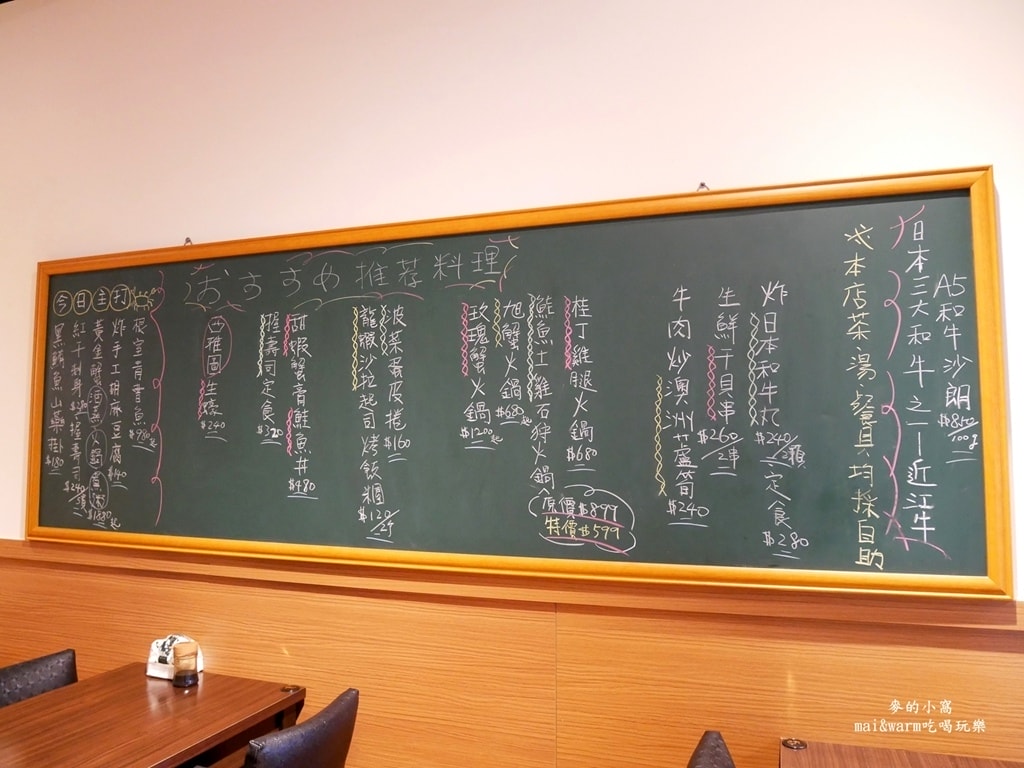 A5和牛沙朗 $850/100g
日本三大和牛之一近江牛
本店茶湯餐具均採自助
炸日本和牛丸$240/2顆 定食$280
生鮮干貝串$260/2串
牛肉炒奧洲蘆筍$240
桂丁雞腿火鍋$680
鮭魚土雞石狩火鍋
原價$899
特價$599
旭蟹火鍋$680起
玫瑰蟹火鍋$1200起
おすすめ推荐料理
皮蛋皮捲$160
龍蝦沙拉起司烤飯糰$120/2个
甜蝦蟹膏鮭魚丼$480
握壽司定食$320
西雅圖生蠔$240
今日主打
根室青青魚$980起
炸手工胡麻豆腐$140
黃金蟹火鍋$1880起
紅干刺身 握壽司$240
黑鯛魚山藥掛$180
麥的小窩
mai&warm吃喝玩樂